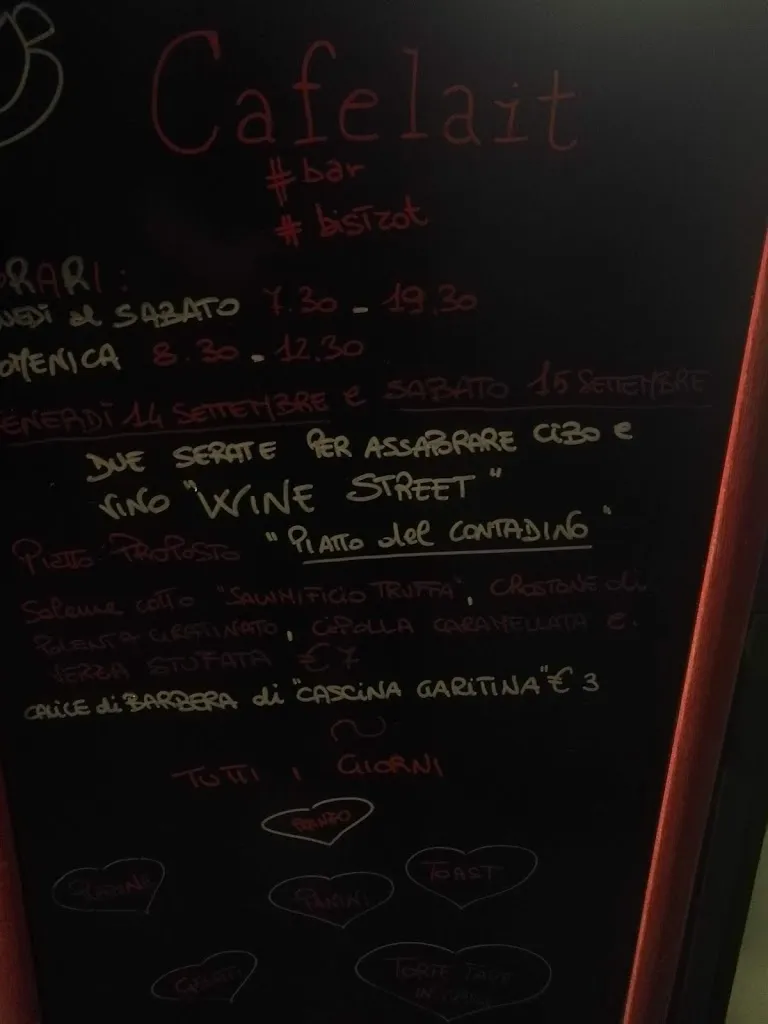 Cafelait
#bar
#bistrot
ORARI:
NEDÌ al SABATO 7.30 - 19.30
OMENICA 8.30 - 12.30
ENERDÌ 14 SETTEMBRE e SABATO 15 SETTEMBRE
DUE SERATE PER ASSAPORARE CIBO e
VINO "WINE STREET"
PIATTO PROPOSTO "PIATTO del CONTADINO"
Salame cotto "SALUMIFICIO TRUFFA", CROSTONE di
POLENTA GRATINATO, CIPOLLA CARAMELLATA e
VERZA STUFATA €7
CALICE di BARBERA di "CASCINA GARITINA" € 3
TUTTI i GIORNI
PRANZO
PIADINE PANINI TOAST
TORTE FATTE
IN CASA